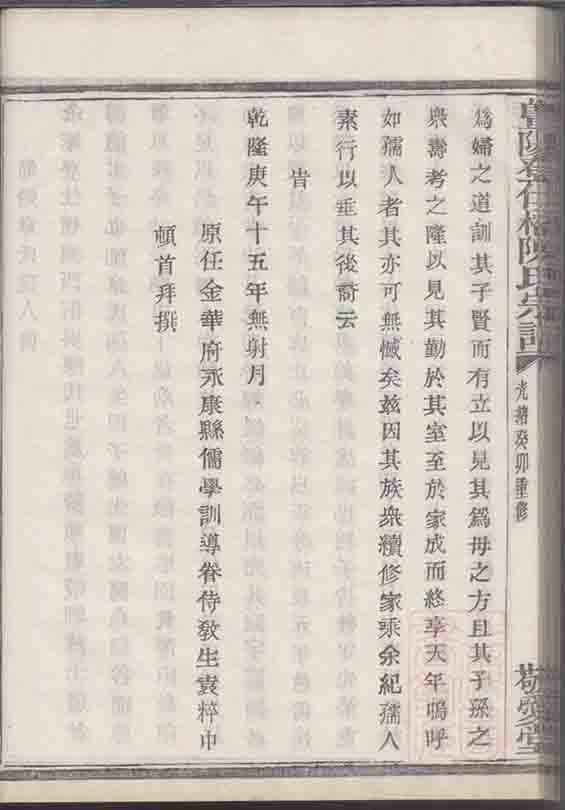 爲婦之道訓其子賢而有立以見其爲母之方且其子孫之
衆壽考之隆以見其勤於其室至於家成而終享天年嗚呼
如孺人者其亦可無憾矣玆因其族衆續修家乘余紀孺人
素行以垂其後裔云
旹
乾隆庚午十五年無射月
原任金華府永康縣儒學訓導眷侍敎生袁粹中
頓首拜撰
陳氏宗譜
光緒癸卯重修
敬愛堂